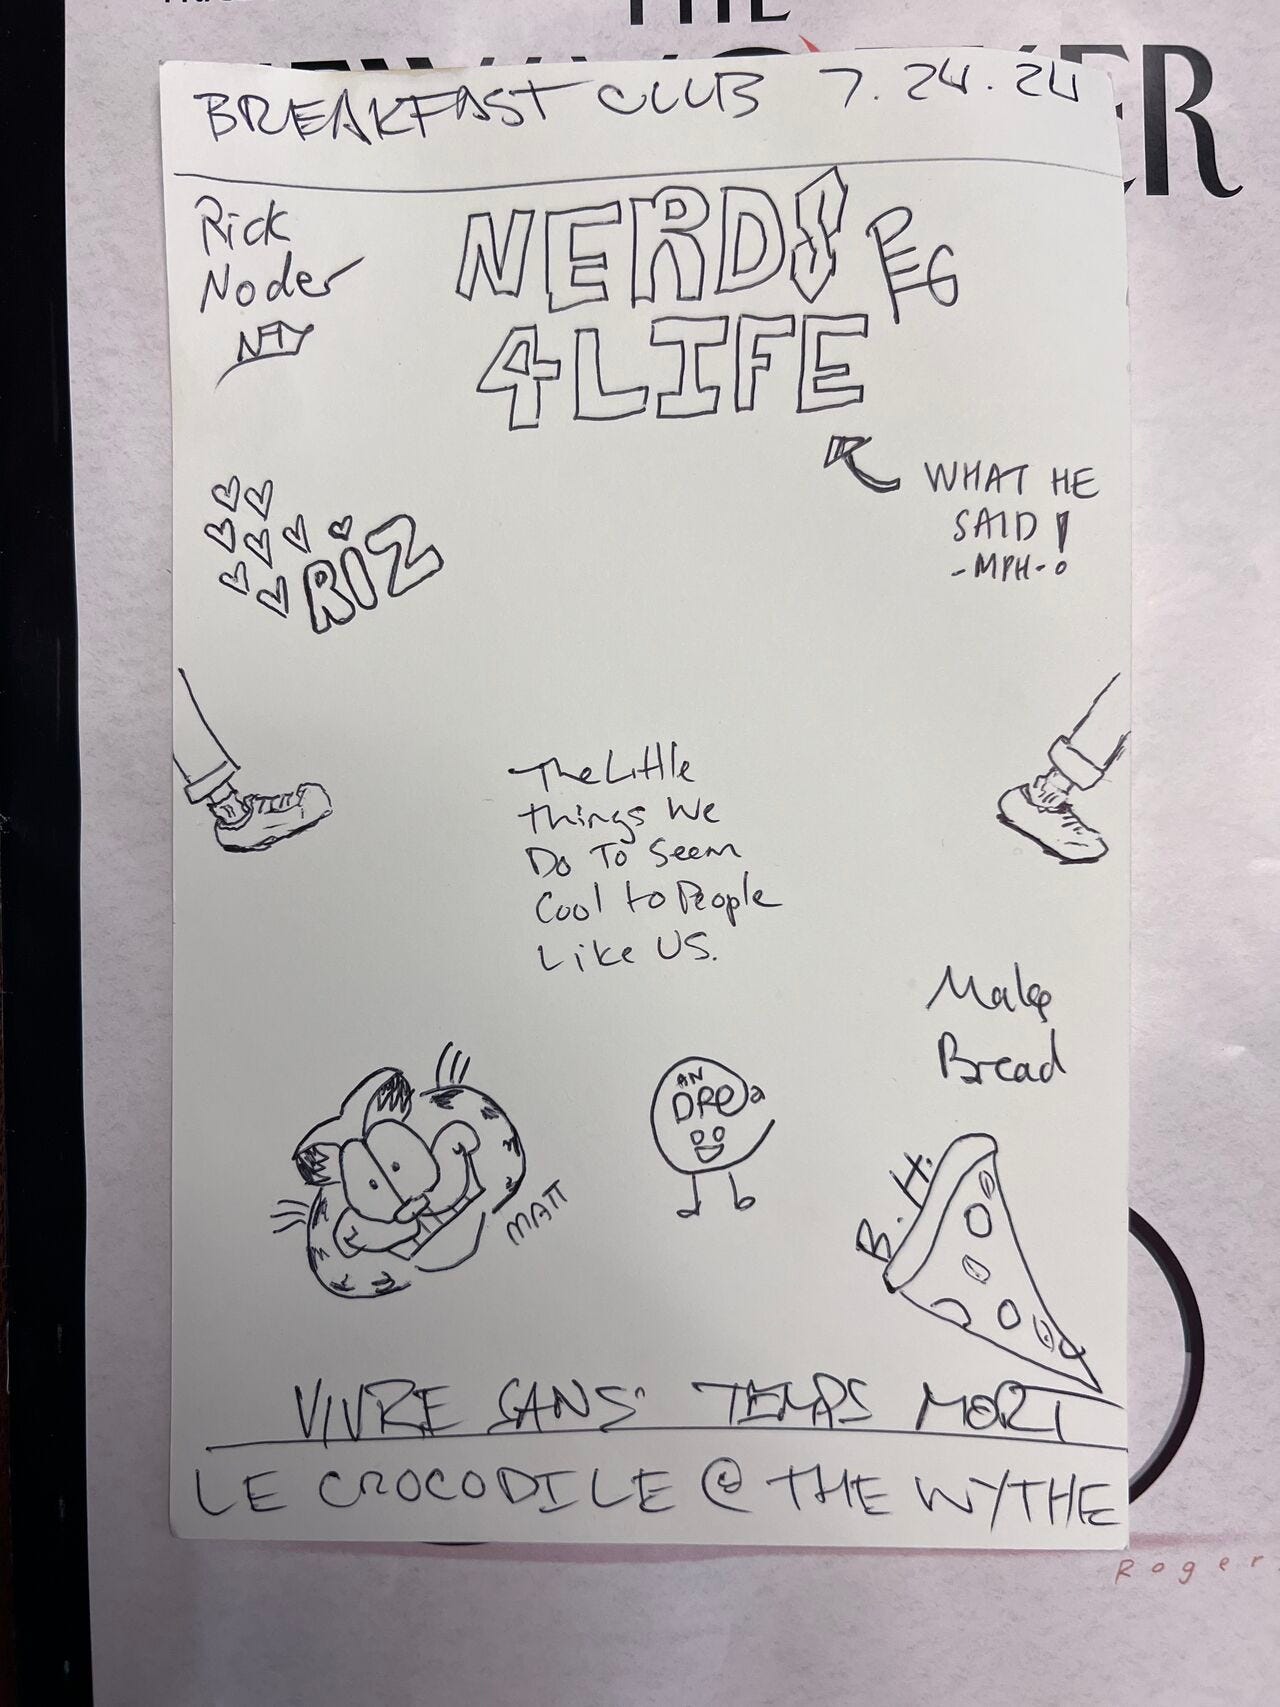 THE
BREAKFAST CLUB 7.24.24
Rick
Noder
NERDS
4LIFE
WHAT HE
SAID!
-MPH-
RIZ
The Little
things We
Do To Seem
Cool to People
Like US.
Make
Bread
AN
DREa
MATT
B.H.
VIVRE SANS TEMPS MORT
LE CROCODILE @ THE WYTHE
Roger